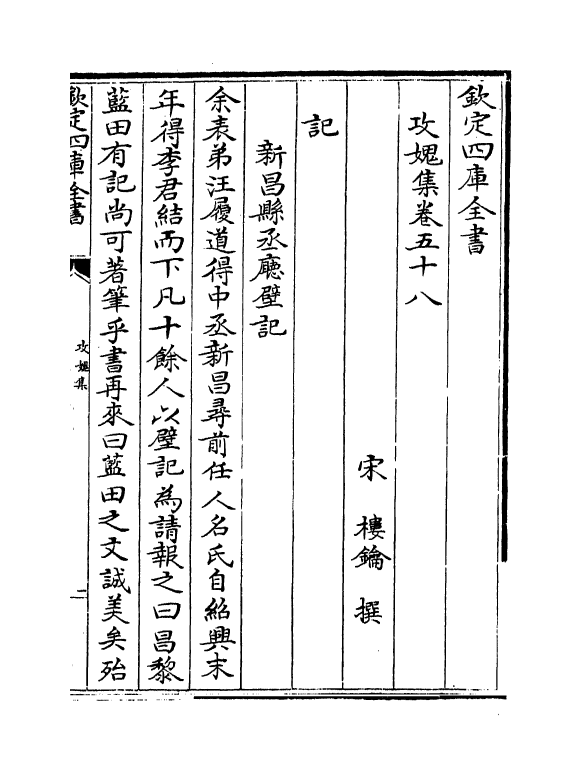 欽定四庫全書
攻媿集卷五十八
宋　樓鑰　撰
記
新昌縣丞廳壁記
余表弟汪履道得中丞新昌尋前任人名氏自紹興末
年得李君結而下凡十餘人以壁記為請報之曰昌黎
藍田有記尚可著筆乎書再來曰藍田之文誠美矣殆
欽定四庫全書
攻媿集
二